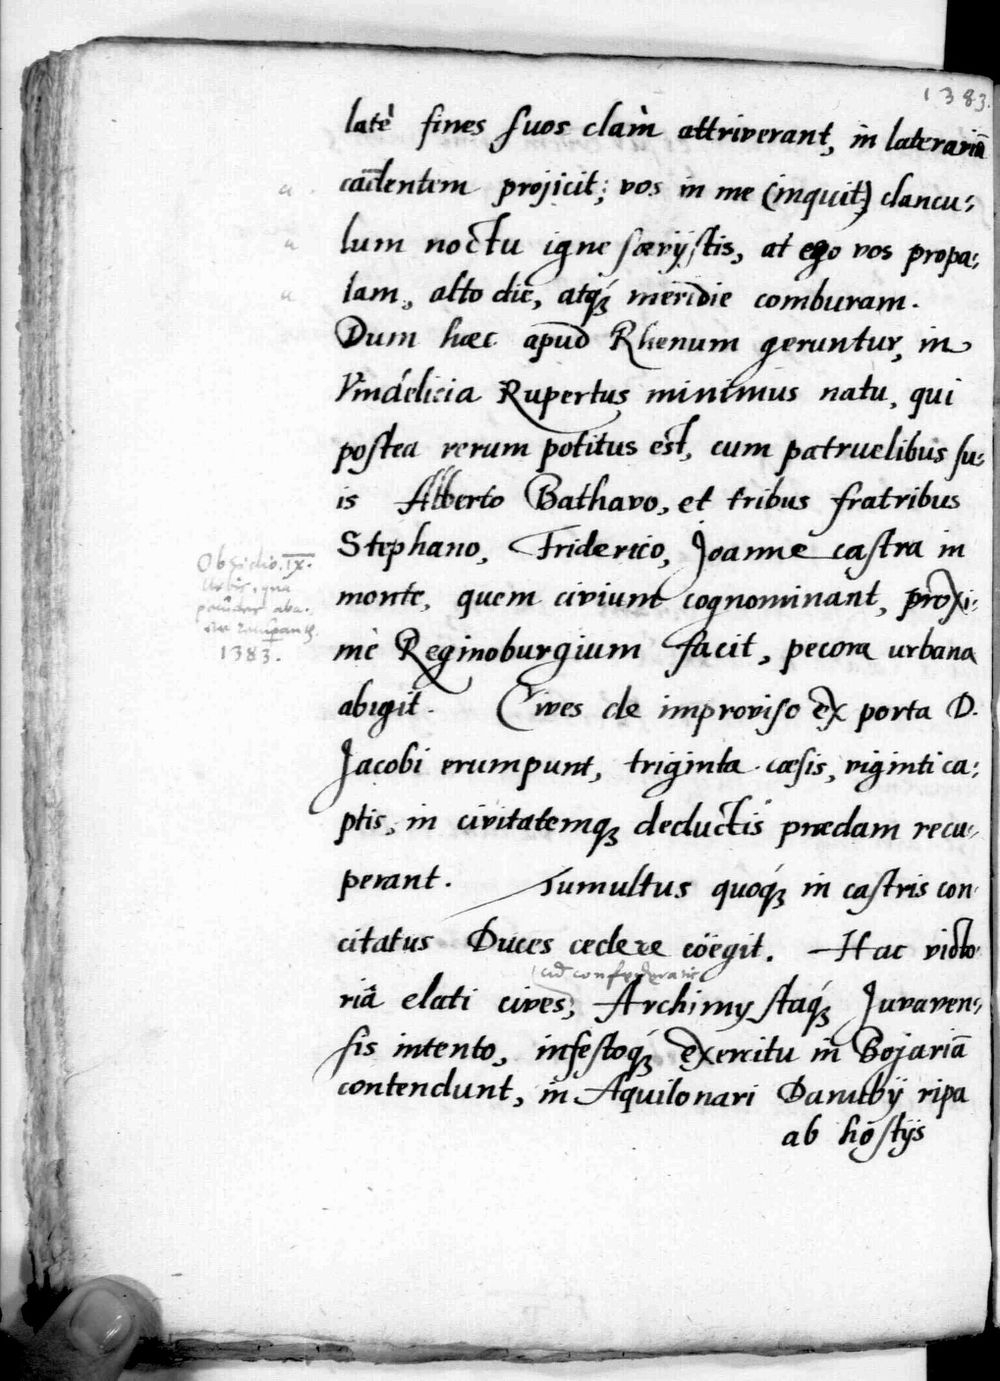 1383.
latè fines suos clam̀ attriverant, in laterariā
cadentem projicit; vos in me (inquit) clancu-
lum noctu igne sævijstis, at ego vos propa-
lam, alto die, atq́ꝫ meridie comburam.
Dum hæc apud Rhenum geruntur, in
Vindelicia Rupertus minimus natu, qui
postea rerum potitus est, cum patruelibus su-
is Alberto Bathavo, et tribus fratribus
Stephano, Friderico, Joanne castra in
monte, quem civiunt cognominant, proxi-
mè Reginoburgium facit, pecora urbana
abigit. Cives de improviso ex porta D.
Jacobi erumpunt, triginta cæsis, viginti ca-
ptis, in civitatemqꝫ deductis prædam recu-
perant. Tumultus quoq́ꝫ in castris con-
citatus Duces cedere cöegit. Hac victo-
riâ elati cives, Archimystaq́ꝫ Juvaven-
sis intento, infestoq́ꝫ exercitu in Bojariā
contendunt, in Aquilonari Danubij ripa
ab hostijs
Obsidio. IX.
Urbis, qua
1383.